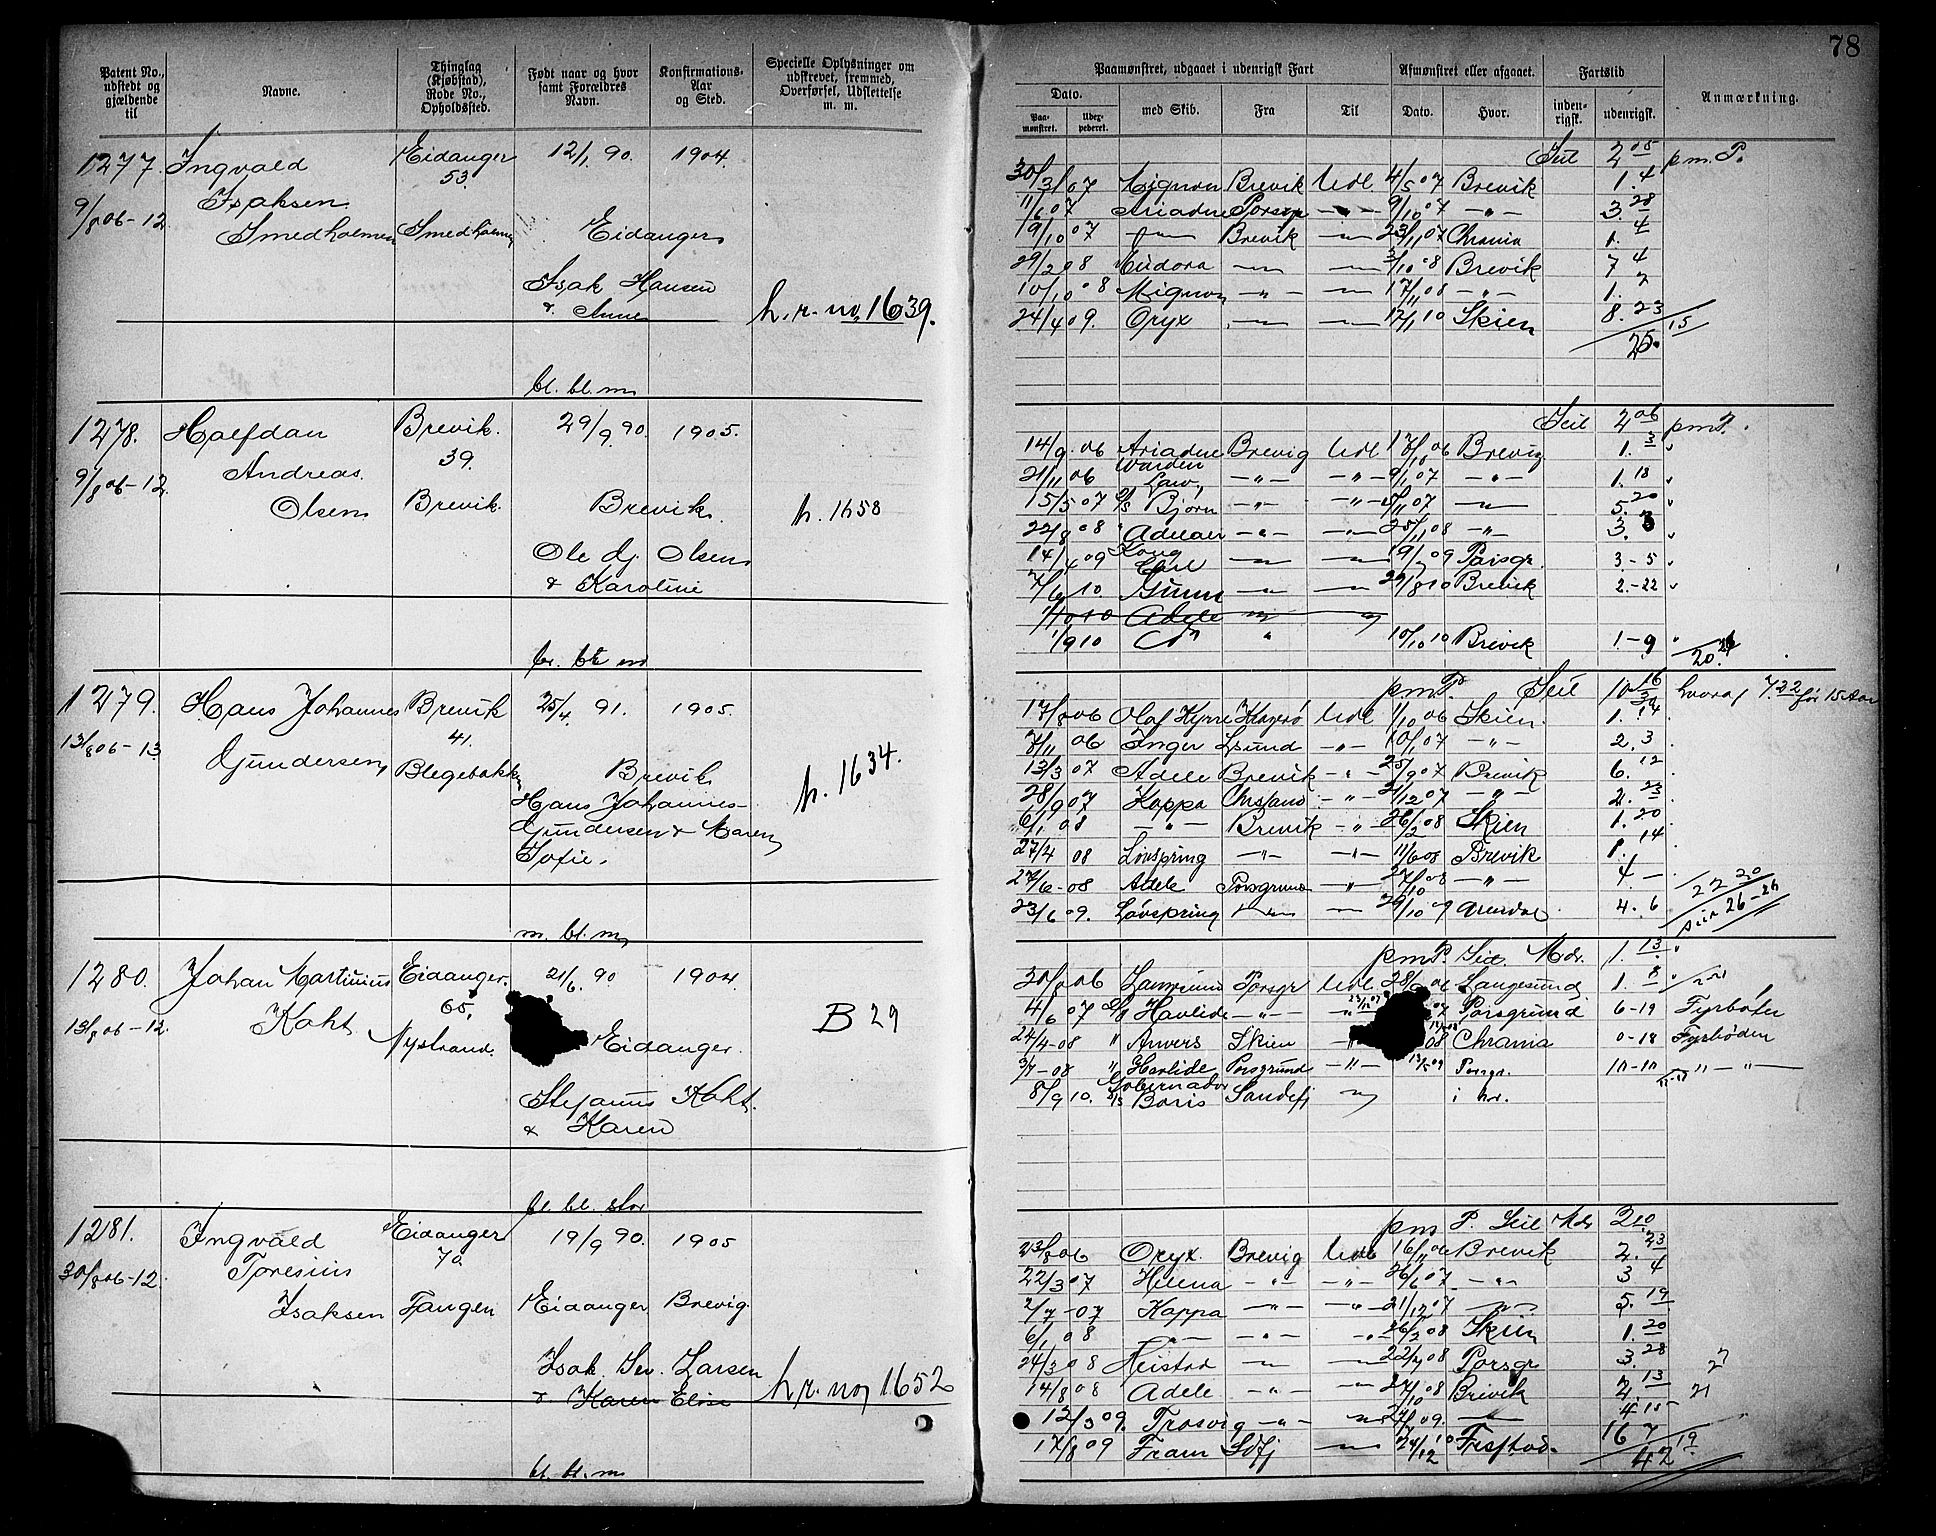 78
Patent No., udstedt og gjældende til
Navne.
Thinglag (Kjøbstad), Rode No., Opholdssted.
Født naar og hvor samt Forældres Navn.
Konfirmations-Aar og Sted.
Specielle Oplysninger om udskrevet, fremmed, Overførsel, Udslettelse m. m.
Paamønstret, udgaaet i udenrigsk Fart
Afmønstret eller afgaaet.
Fartstid
Anmærkning.
Dato.
Paamønstret.
med Skib.
Fra
Til
Dato.
Hvor.
indenrigsk.
udenrigsk.
1277. Ingvald Eidanger 12/1 90. 1904.
53.
9/8 06-12 Isaksen
Smedholmen Smedholmen Eidanger
Isak Hansen
& Anne
h.r. no, 1639.
bl. bl. m
Seil 2 05 pm. P.
30/3 07 Mignon Brevik Udl 4/5 07 Brevik 1. 4
11/6 07 Ariadne Porsgr — " — 9/10 07 — " — 3. 28
19/10 07 — " — Brevik — 23/11 07 Chrania 1. 4
29/2 08 Eudora — — 3/10 08 Brevik 7 4
10/10 08 Mignon — " — — 17/11 08 — " — 1. 7
24/4 09. Oryx — — 17/1 10 Skien 8. 23
15
1278. Halfdan Brevik. 29/9 90. 1905.
39.
9/8 06-12 Andreas
Olsen Brevik. Brevik.
h. 1658
Ole Gj Olsen
& Karoline
br. bl. m
Seil 2 06 pm P.
14/9. 06 Ariadne Brevig Udl 17/10 06 Brevig 1. 3
21/11 06 Warden Law, — " — — " — 9/1 07 — " — 1. 18
15/5 07 S/S Bjørn — " — — " — /11 07 — 5. 20
22/8 08 Adelaer — " — — 25/11 08 — " — 3. 3
14/4 09 Kong Carl — — 19/7 09 Porsgr. 3-5
7/6 10 Gunn — — 29/8 10 Brevik 2-22
1/10 10 Adele
1/9 10 Do " 10/10 10 Brevik 1-9
20. 21
1279. Hans Johannes Brevik 25/4. 91. 1905.
41.
13/8 06-13 Gundersen, Blegebakken Brevik
Hans Johannes
Gundersen & Maren
Sofie.
h. 1634.
m. bl. m
pm P. Seil 10 16 hvoraf 7/22 før 15 Aar
17/8 06 Olaf Kyrre Kragerø Udl 1/10 06 Skien. 1. 14
7/11 06 Inger Lsund — " — 10/1 07 — " — 2. 3
13/3 07 Adele Brevik — " — 25/9 07 Brevik 6. 12
28/9 07 Kappa Chrsand — " — 21/12 07 — " — 2. 23
6/1 08 — " — Brevik — " — 26/2 08 Skien 1. 20
27/4 08 Lovspring — " — — " — 11/6 08 Brevik 1. 14
27/6-08 Adele Porsgrund — " — 27/10 08 — " — 4 —
23/6 09. Løvspring — — 29/10 09 Arendal 4. 6
22 20
26-26
1280. Johan Martinius Eidanger. 21/6. 90 1904
65.
13/8 06-12. Koht Nystrand. Eidanger.
B 29
Stefanus Koht.
& Karen
bl. bl. stor
pm P. Seil. Mdr. 1. 13.
30/8 06 Porsgr Udl 28/ 06 Langesund 1. 8
4/6 07 S/S Havlide — " — 07 Porsgrund 6-19 Fyrbøter
24/4-08 " Anvers Skien — 08 Chrania 0-18 Fyrbøden
3/7-08 " Havlide Porsgrund — " — 13/5 09 Porsgr. 10-10 " — " —
8/9 10. S/S Gobernador Boris Sandefj i hr.
1281. Ingvald Eidanger 19/9 90. 1905
70.
30/8 06-12. Toresius
Isaksen Tangen Eidanger Brevig
Isak Sev. Larsen
& Karen Elise
h.r. no, 1652
bl. bl. m
pm P. Seil Mdr 2 10.
23/8 06 Oryx Brevig Udl 16/11 06 Brevik 2. 23
22/3 07 Helena — " — — " — 26/6 07 — " — 3 4
2/7-07 Kappa — " — — " — 21/12 07 — " — 5. 19
6/1 08 — " — — " — — " — 26/2 08 Skien 1. 20
24/3 08 Heistad — — 22/7 08 Porsgr 3. 28
14/8 08 Adele — " — — " — 27/10 08 Brevik 2. 13 21
12/3 09. Trosvig — " — — 27/7 09. — 4 15
17/8 09 Fram Sdfj — 24/12 10 Frstad. 16 7
42 19